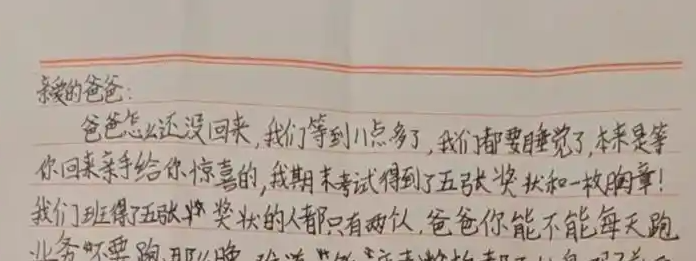 亲爱的爸爸:
爸爸怎么还没回来,我们等到11点多了,我们都要睡觉了,本来是等
你回来亲手给你惊喜的,我期末考试得到了五张奖状和一枚胸章!
我们班得了五张奖状的人都只有两个,爸爸你能不能每天跑
业务不要跑那么晚